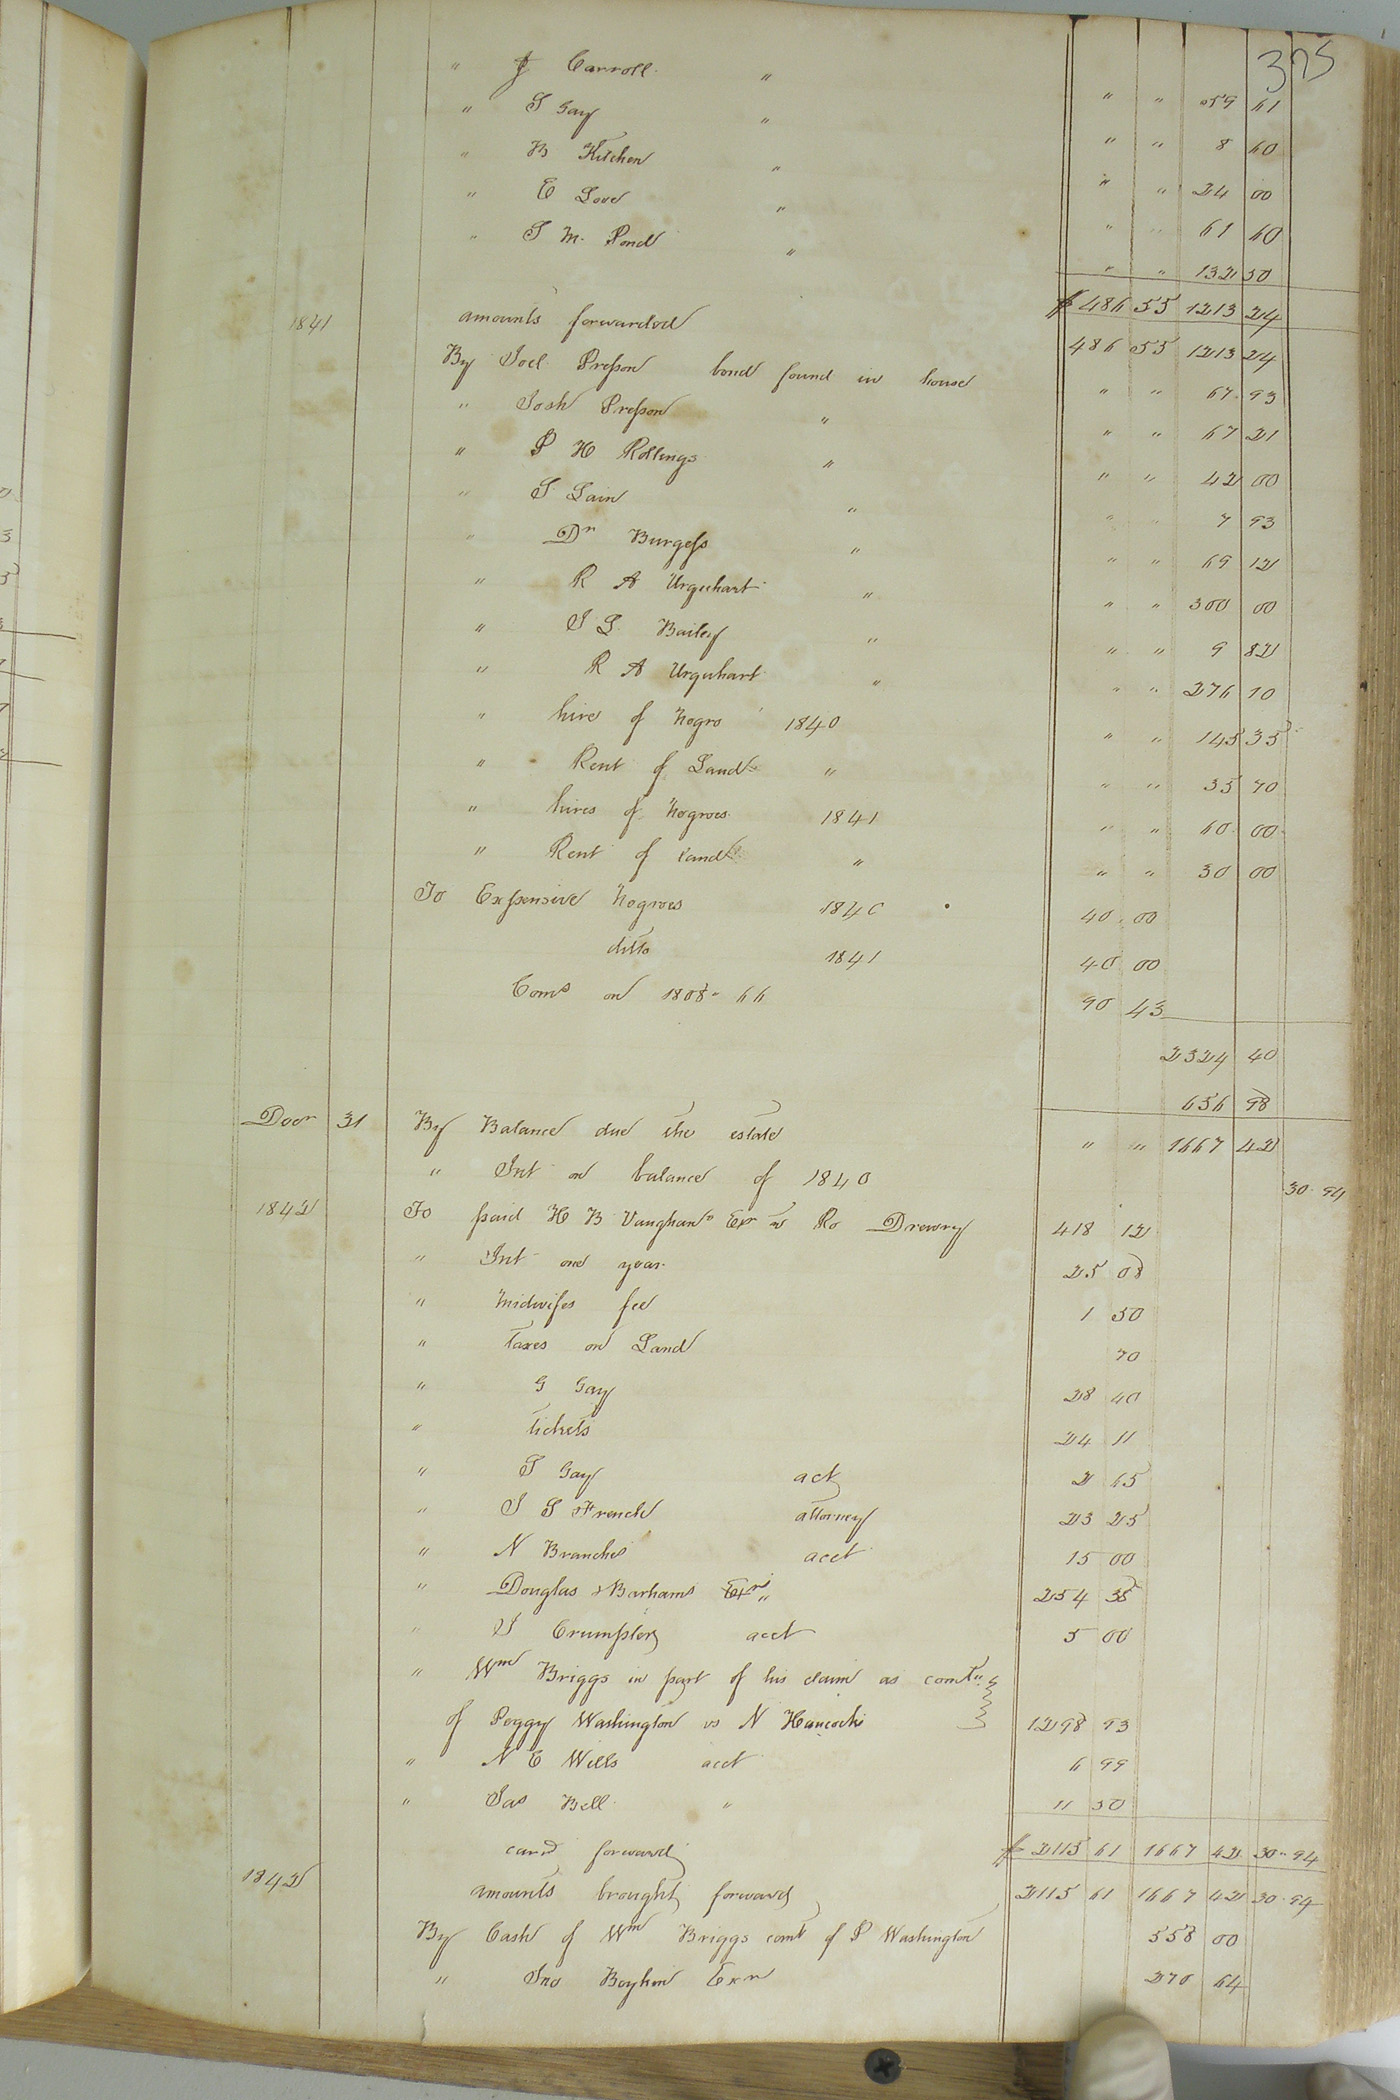 375
" J Carroll " " " 59 61
" S Gay " " " 8 60
" B Kitchen " " " 24 00
" E Love " " " 61 60
" S M. Pond " " " 132 50
$ 486 55 1213 24
1841 amounts forwarded 486 55 1213 24
By Joel Presson bond found in house " " 67 93
" Josh Presson " " " 67 21
" P H Rollings " " " 42 00
" S Lain " " " 7 93
" Dr Burgess " " " 69 12
" R A Urquhart " " " 300 00
" S L Bailey " " " 9 82
" R A Urquhart " " " 276 10
" hire of Negro 1840 " " 145 35
" Rent of Land " " " 35 70
" hires of Negroes 1841 " " 60 00
" Rent of land " " " 30 00
To Expensive Negroes 1840 40 00
ditto 1841 40 00
Coms on 1808-66 90 43
2324 40
656 98
Decr 31 By Balance due the estate " " 1667 42
" Int on balance of 1840 30 94
1842 To paid H B Vaughans Exr Ro Drewry 418 12
" Int one year 25 08
" Midwifes fee 1 50
" taxes on Land 70
" G Gay 28 40
" tickets 24 11
" S Gay act 2 65
" S S French attorney 23 25
" N Branche acct 15 00
" Douglas & Barhams Exrs " 254 35
" Crumpler acct 5 00
" Wm Briggs in part of his claim as comtee
of Peggy Washington vs N Hancocks 1298 93
" N E Wills acct 6 99
" Jas Bell " 11 50
card forward $ 2115 61 1667 42 30 94
1842 amounts brought forward 2115 61 1667 42 30 94
By Cash of Wm Briggs comt of P Washington 558 00
" Jno Boykin Exr 270 64